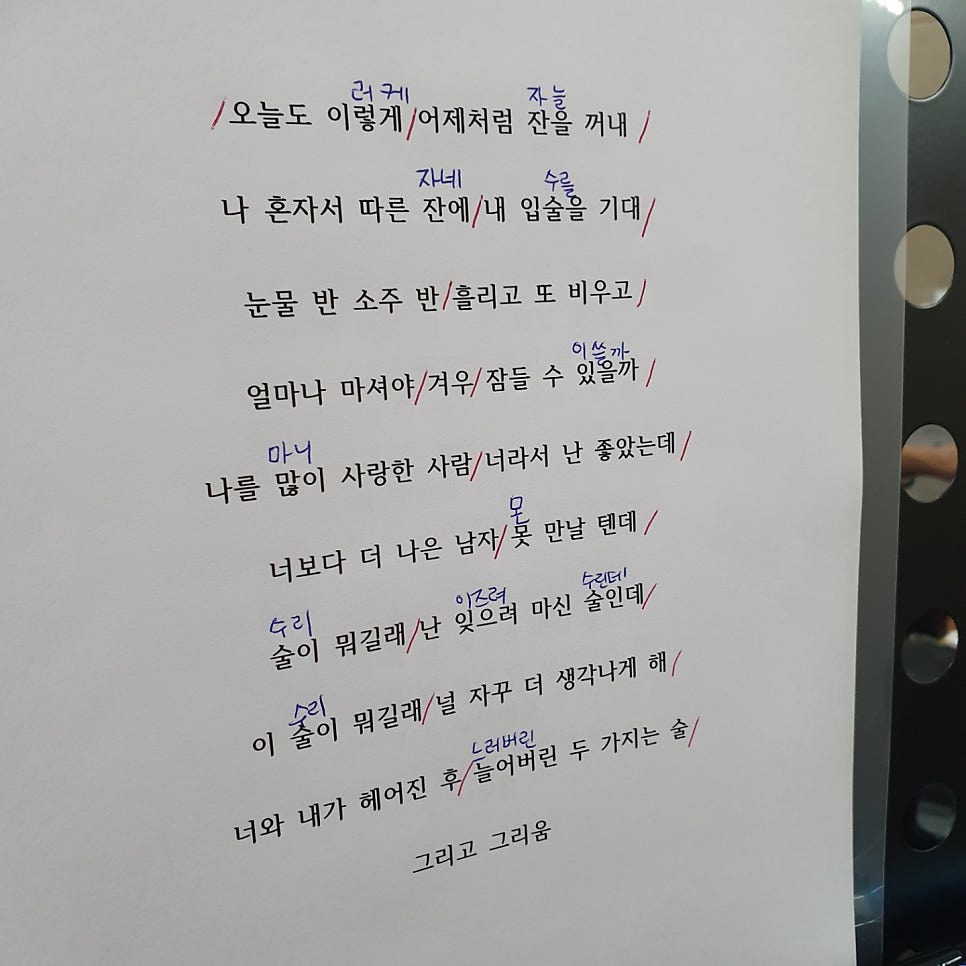 러케 자늘
/오늘도 이렇게/어제처럼 잔을 꺼내/
자네 수를
나 혼자서 따른 잔에/내 입술을 기대/
눈물 반 소주 반/흘리고 또 비우고/
이쓸까
얼마나 마셔야/겨우/잠들 수 있을까/
마니
나를 많이 사랑한 사람/너라서 난 좋았는데/
몬
너보다 더 나은 남자/못 만날 텐데/
수리 이즈려 수린데
술이 뭐길래/난 잊으려 마신 술인데/
수리
이 술이 뭐길래/널 자꾸 더 생각나게 해/
느러버린
너와 내가 헤어진 후/늘어버린 두 가지는 술/
그리고 그리움